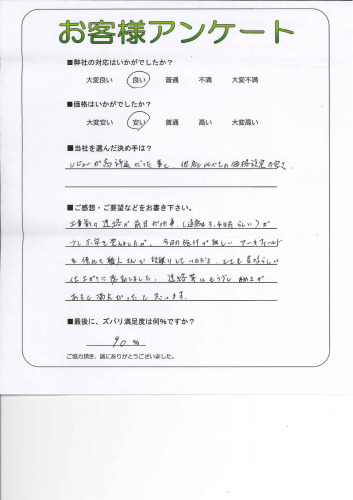 お客様アンケート
■弊社の対応はいかがでしたか？
大変良い 良い 普通 不満 大変不満
■価格はいかがでしたか？
大変安い 安い 普通 高い 大変高い
■当社を選んだ決め手は？
レビューが高評価だった事と、他店に比べての価格設定の安さ。
■ご感想・ご要望などをお書き下さい。
工事前の連絡が前日だった事。(通常は3.4日前らしい)が
少し不安を覚えましたが、今回の
職人さんが段取りして
仕上がりに感動しました。連絡等はもう少し
あると満点だったと思います。
■最後に、ズバリ満足度は何％ですか？
90％
ご協力頂き、誠にありがとうございました。